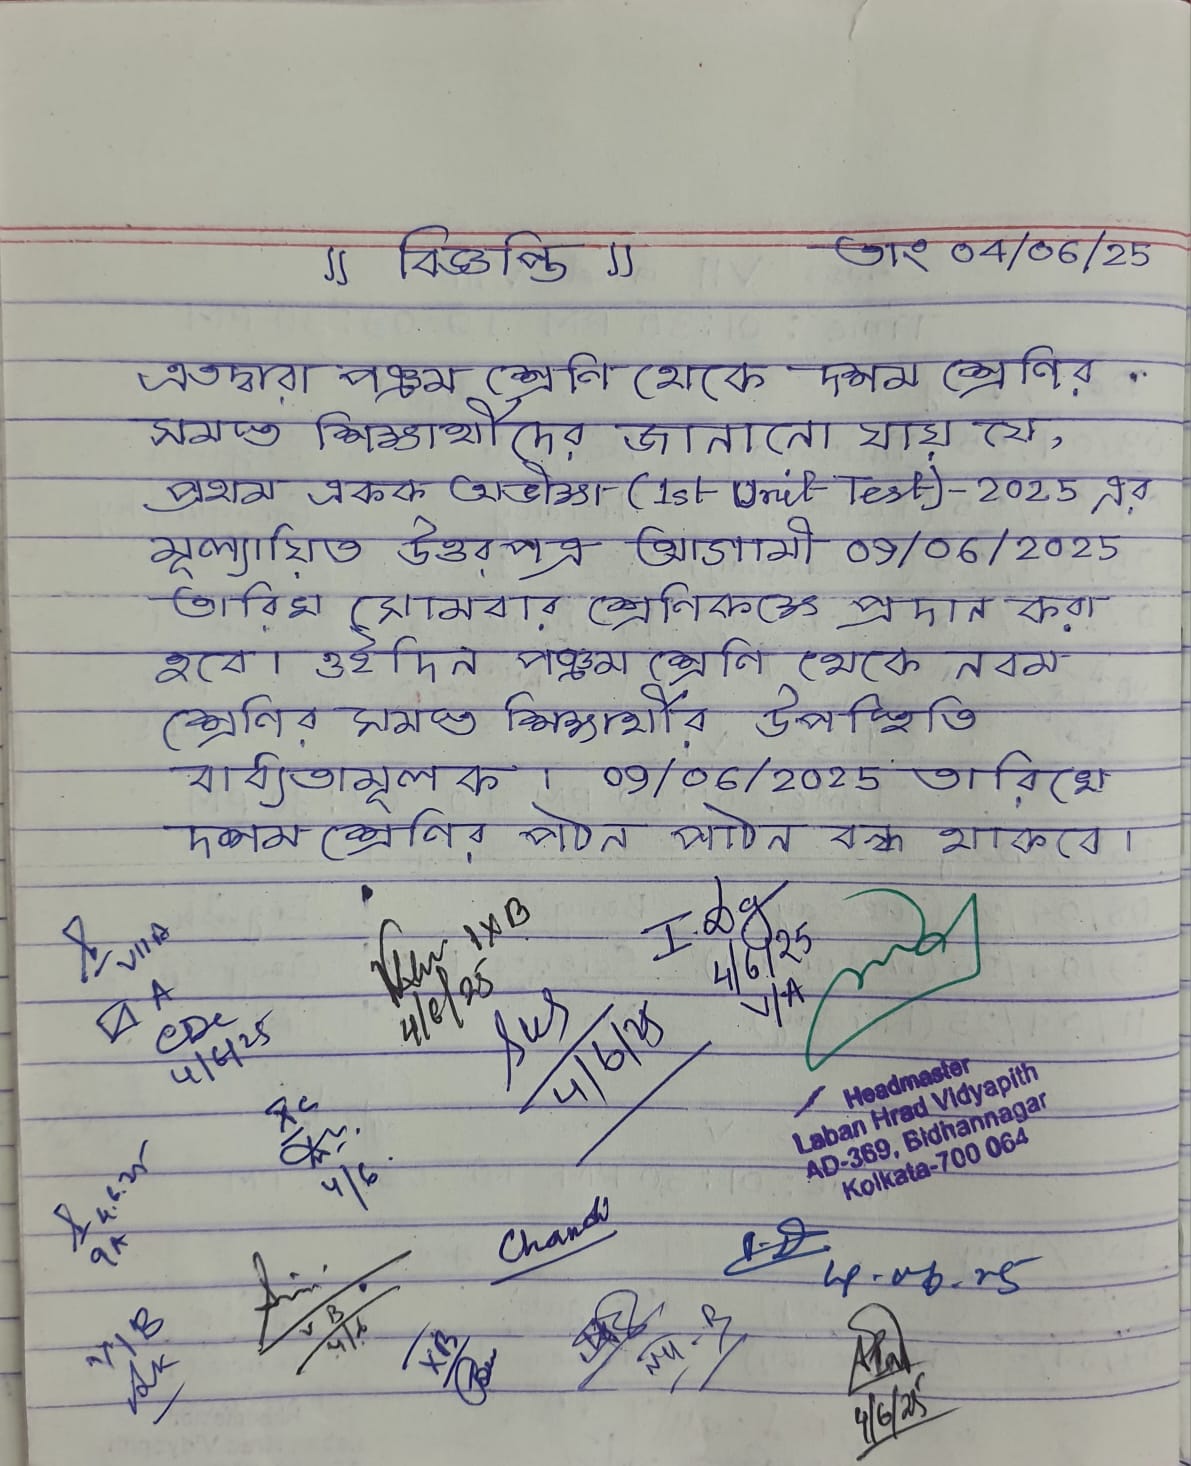 ॥ বিজ্ঞপ্তি ॥ তাং 04/06/25
এতদ্বারা পঞ্চম শ্রেণি থেকে দশম শ্রেণির
সমস্ত শিক্ষার্থীদের জানানো যায় যে,
প্রথম একক অভীক্ষা (1st Unit Test)-2025 এর
মূল্যায়িত উত্তরপত্র আগামী 09/06/2025
তারিখ সোমবার শ্রেণিকক্ষে প্রদান করা
হবে। ওইদিন পঞ্চম শ্রেণি থেকে নবম
শ্রেণির সমস্ত শিক্ষার্থীর উপস্থিতি
বাধ্যতামূলক। 09/06/2025 তারিখে
দশম শ্রেণির পঠন পাঠন বন্ধ থাকবে।
VII A
IXB
4/6/25
4/6/25
4/6/25
V/A
A
4/6/25
Headmaster
Laban Hrad Vidyapith
AD-369, Bidhannagar
Kolkata-700 064
4/6
4.6.25
4/6
XB
4/6/25